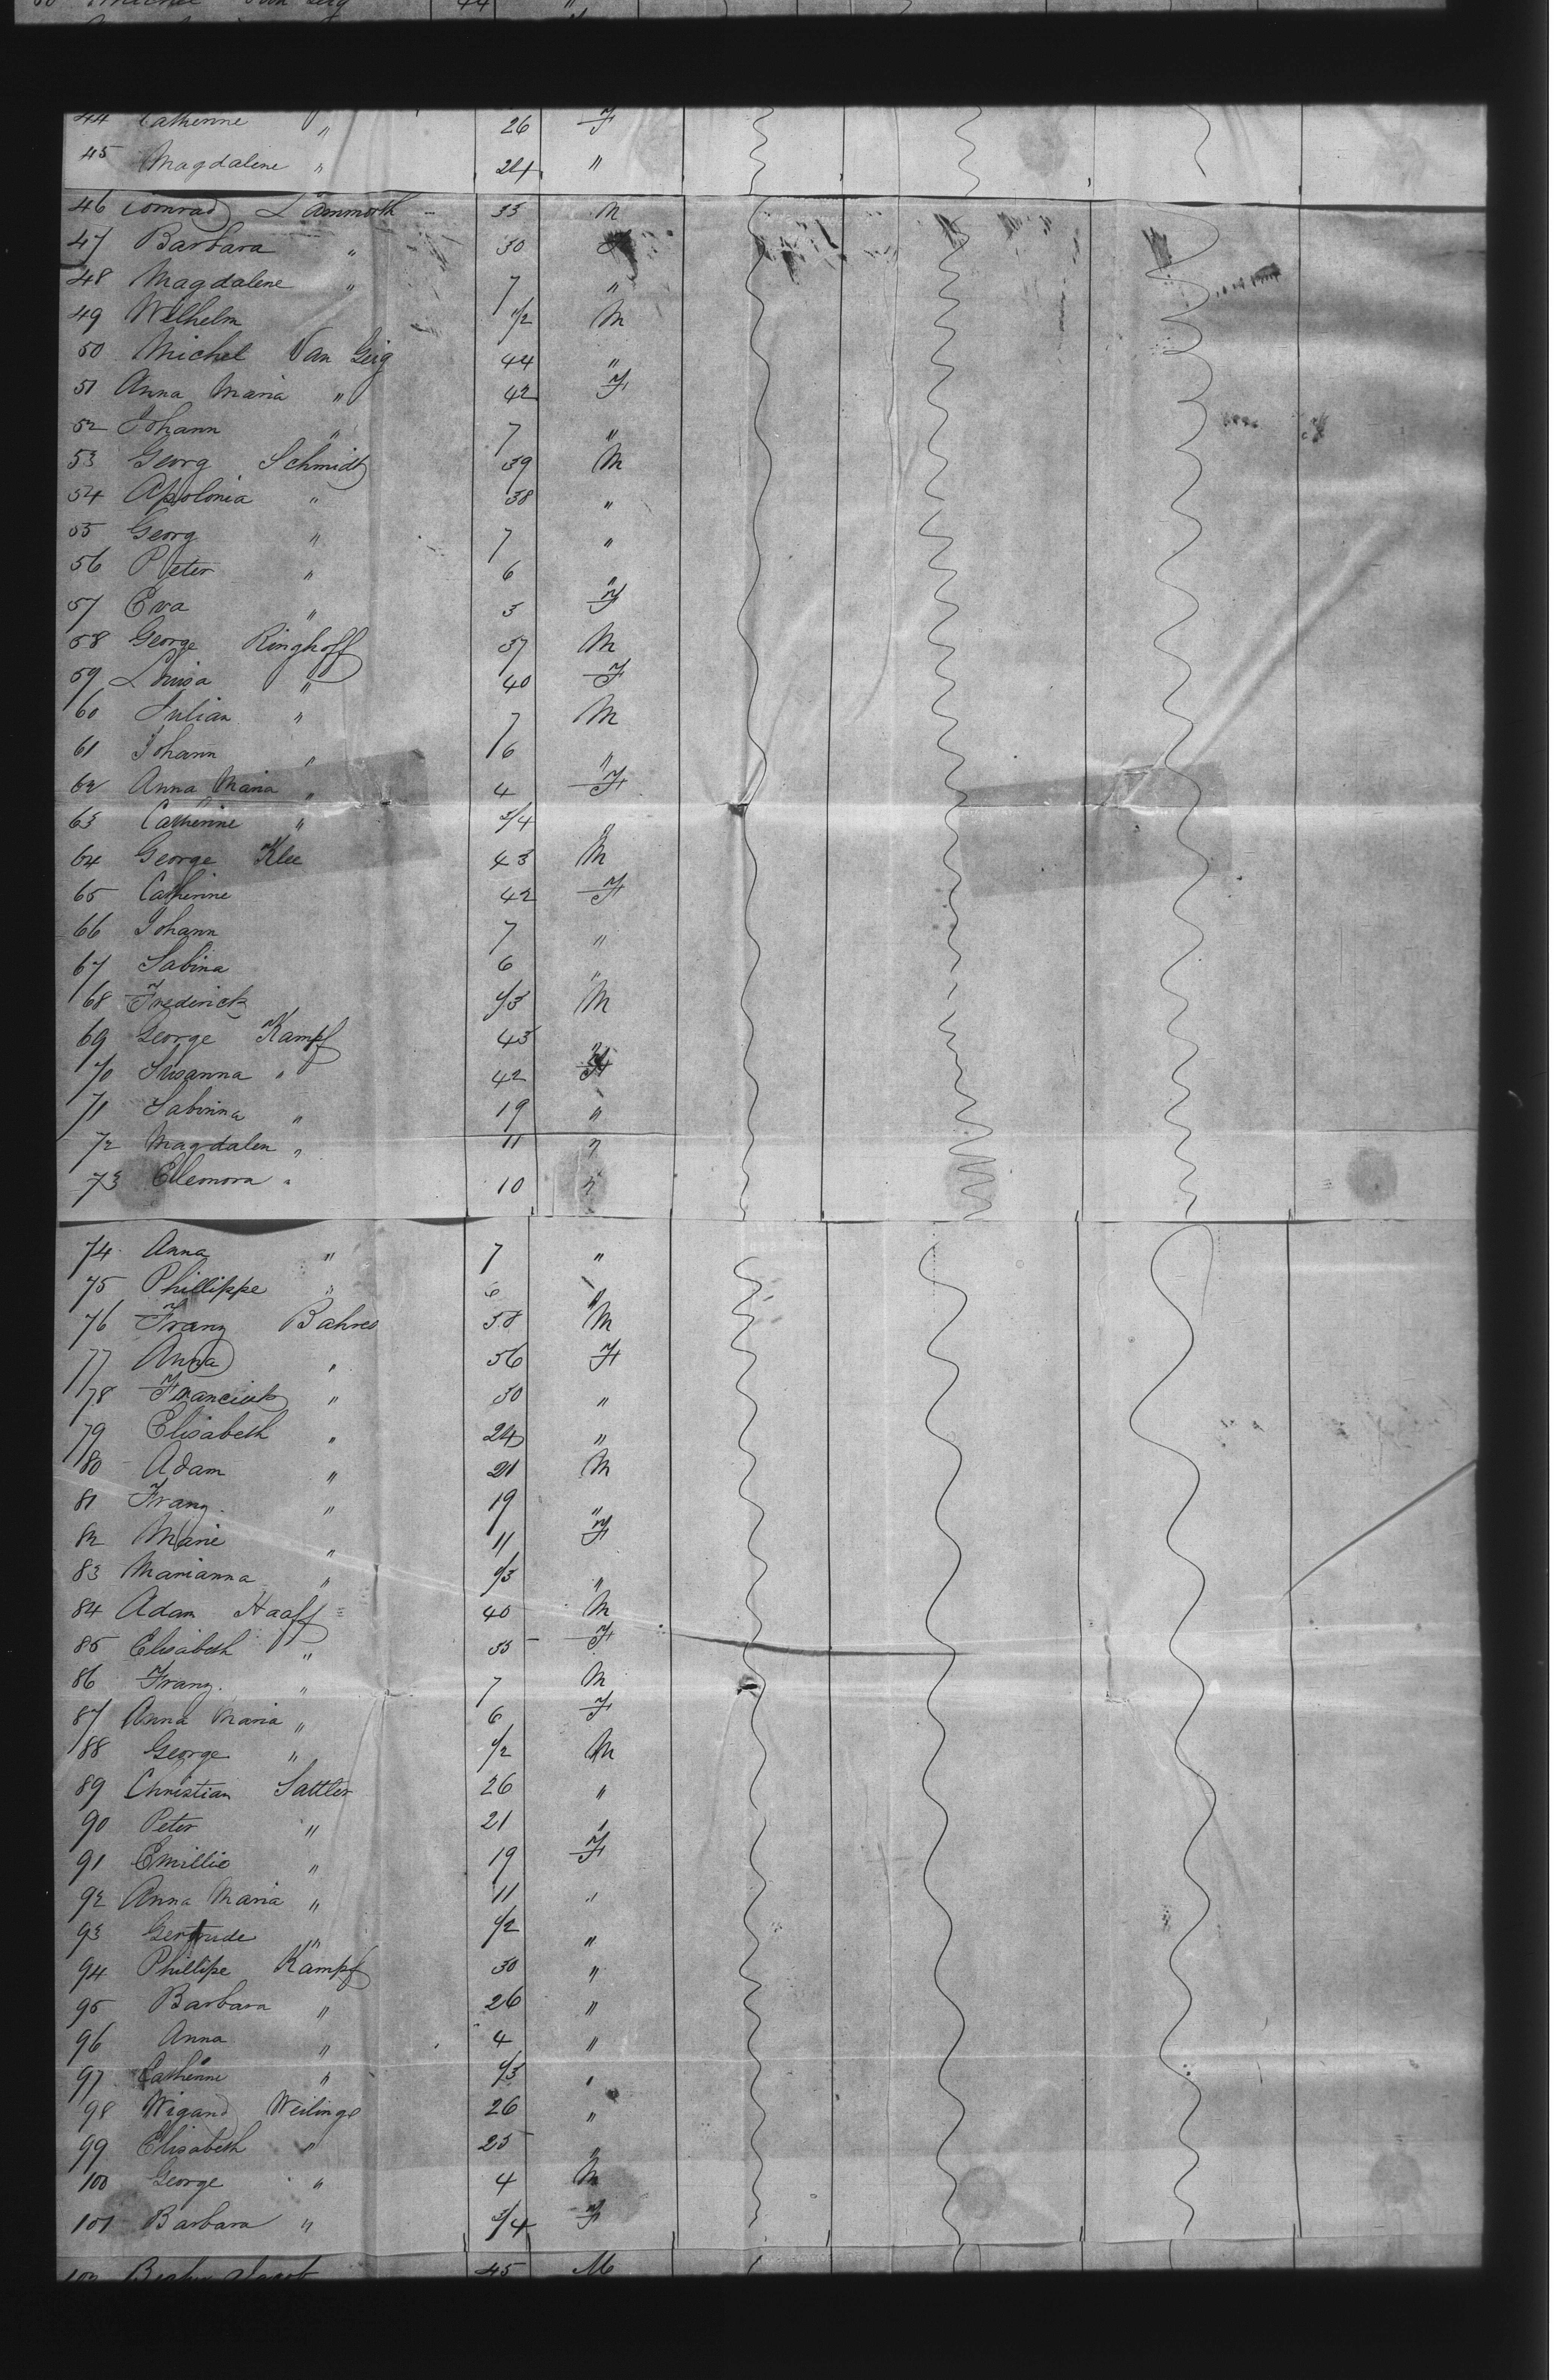 50 Michel Van Geig 44 "
44 Catherine " 26 F
45 Magdalene " 24 "
46 Conrad Lammorth 33 M
47 Barbara " 30 F
48 Magdalene " 7 "
49 Wilhelm 1/2 M
50 Michel Van Geig 44 "
51 Anna Maria " 42 F
52 Johann " 7 "
53 Georg Schmidt 39 M
54 Apolonia " 38 "
55 Georg " 7 "
56 Peter " 6 "
57 Eva " 3 F
58 George Ringhoff 37 M
59 Louisa " 40 F
60 Julian " 7 M
61 Johann " 6 "
62 Anna Maria " 4 F
63 Catherine " 3/4 "
64 George Klee 43 M
65 Catherine 42 F
66 Johann 7 "
67 Sabina 6 "
68 Frederick 1/3 M
69 George Kampf 43 "
70 Susanna " 42 F
71 Sabinna " 19 "
72 Magdalen " 11 "
73 Elleonora " 10 "
74 Anna " 7 "
75 Phillippe " 6 "
76 Franz Bahres 58 M
77 Anna " 56 F
78 " 30 "
79 Elisabeth " 24 "
80 Adam " 21 M
81 Franz " 19 "
82 Marie " 11 F
83 Marianna " 1/3 "
84 Adam Haaff 40 M
85 Elisabeth " 35 F
86 Franz " 7 M
87 Anna Maria " 6 F
88 George " 1/2 M
89 Christian Sattler 26 "
90 Peter " 21 "
91 Emillie " 19 F
92 Anna Maria " 11 "
93 Gertrude " 1/2 "
94 Phillipe Kampf 30 "
95 Barbara " 26 "
96 Anna " 4 "
97 Catherine " 1/3 "
98 Wigand Weilinge 26 "
99 Elisabeth " 25 "
100 George " 4 M
101 Barbara " 3/4 F
45 M